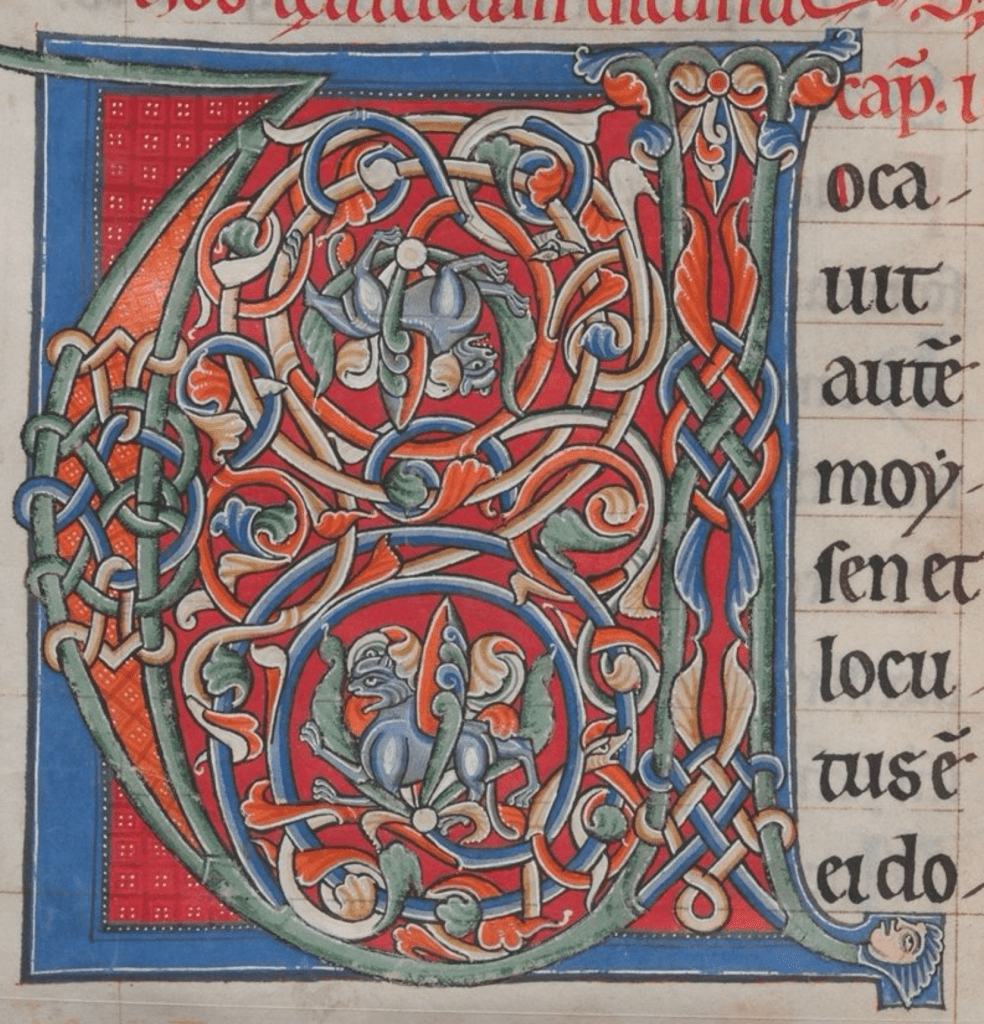 cap̄. ı
Voca-
uit
autē
moẏ-
sen et
locu-
tus ē
ei do-